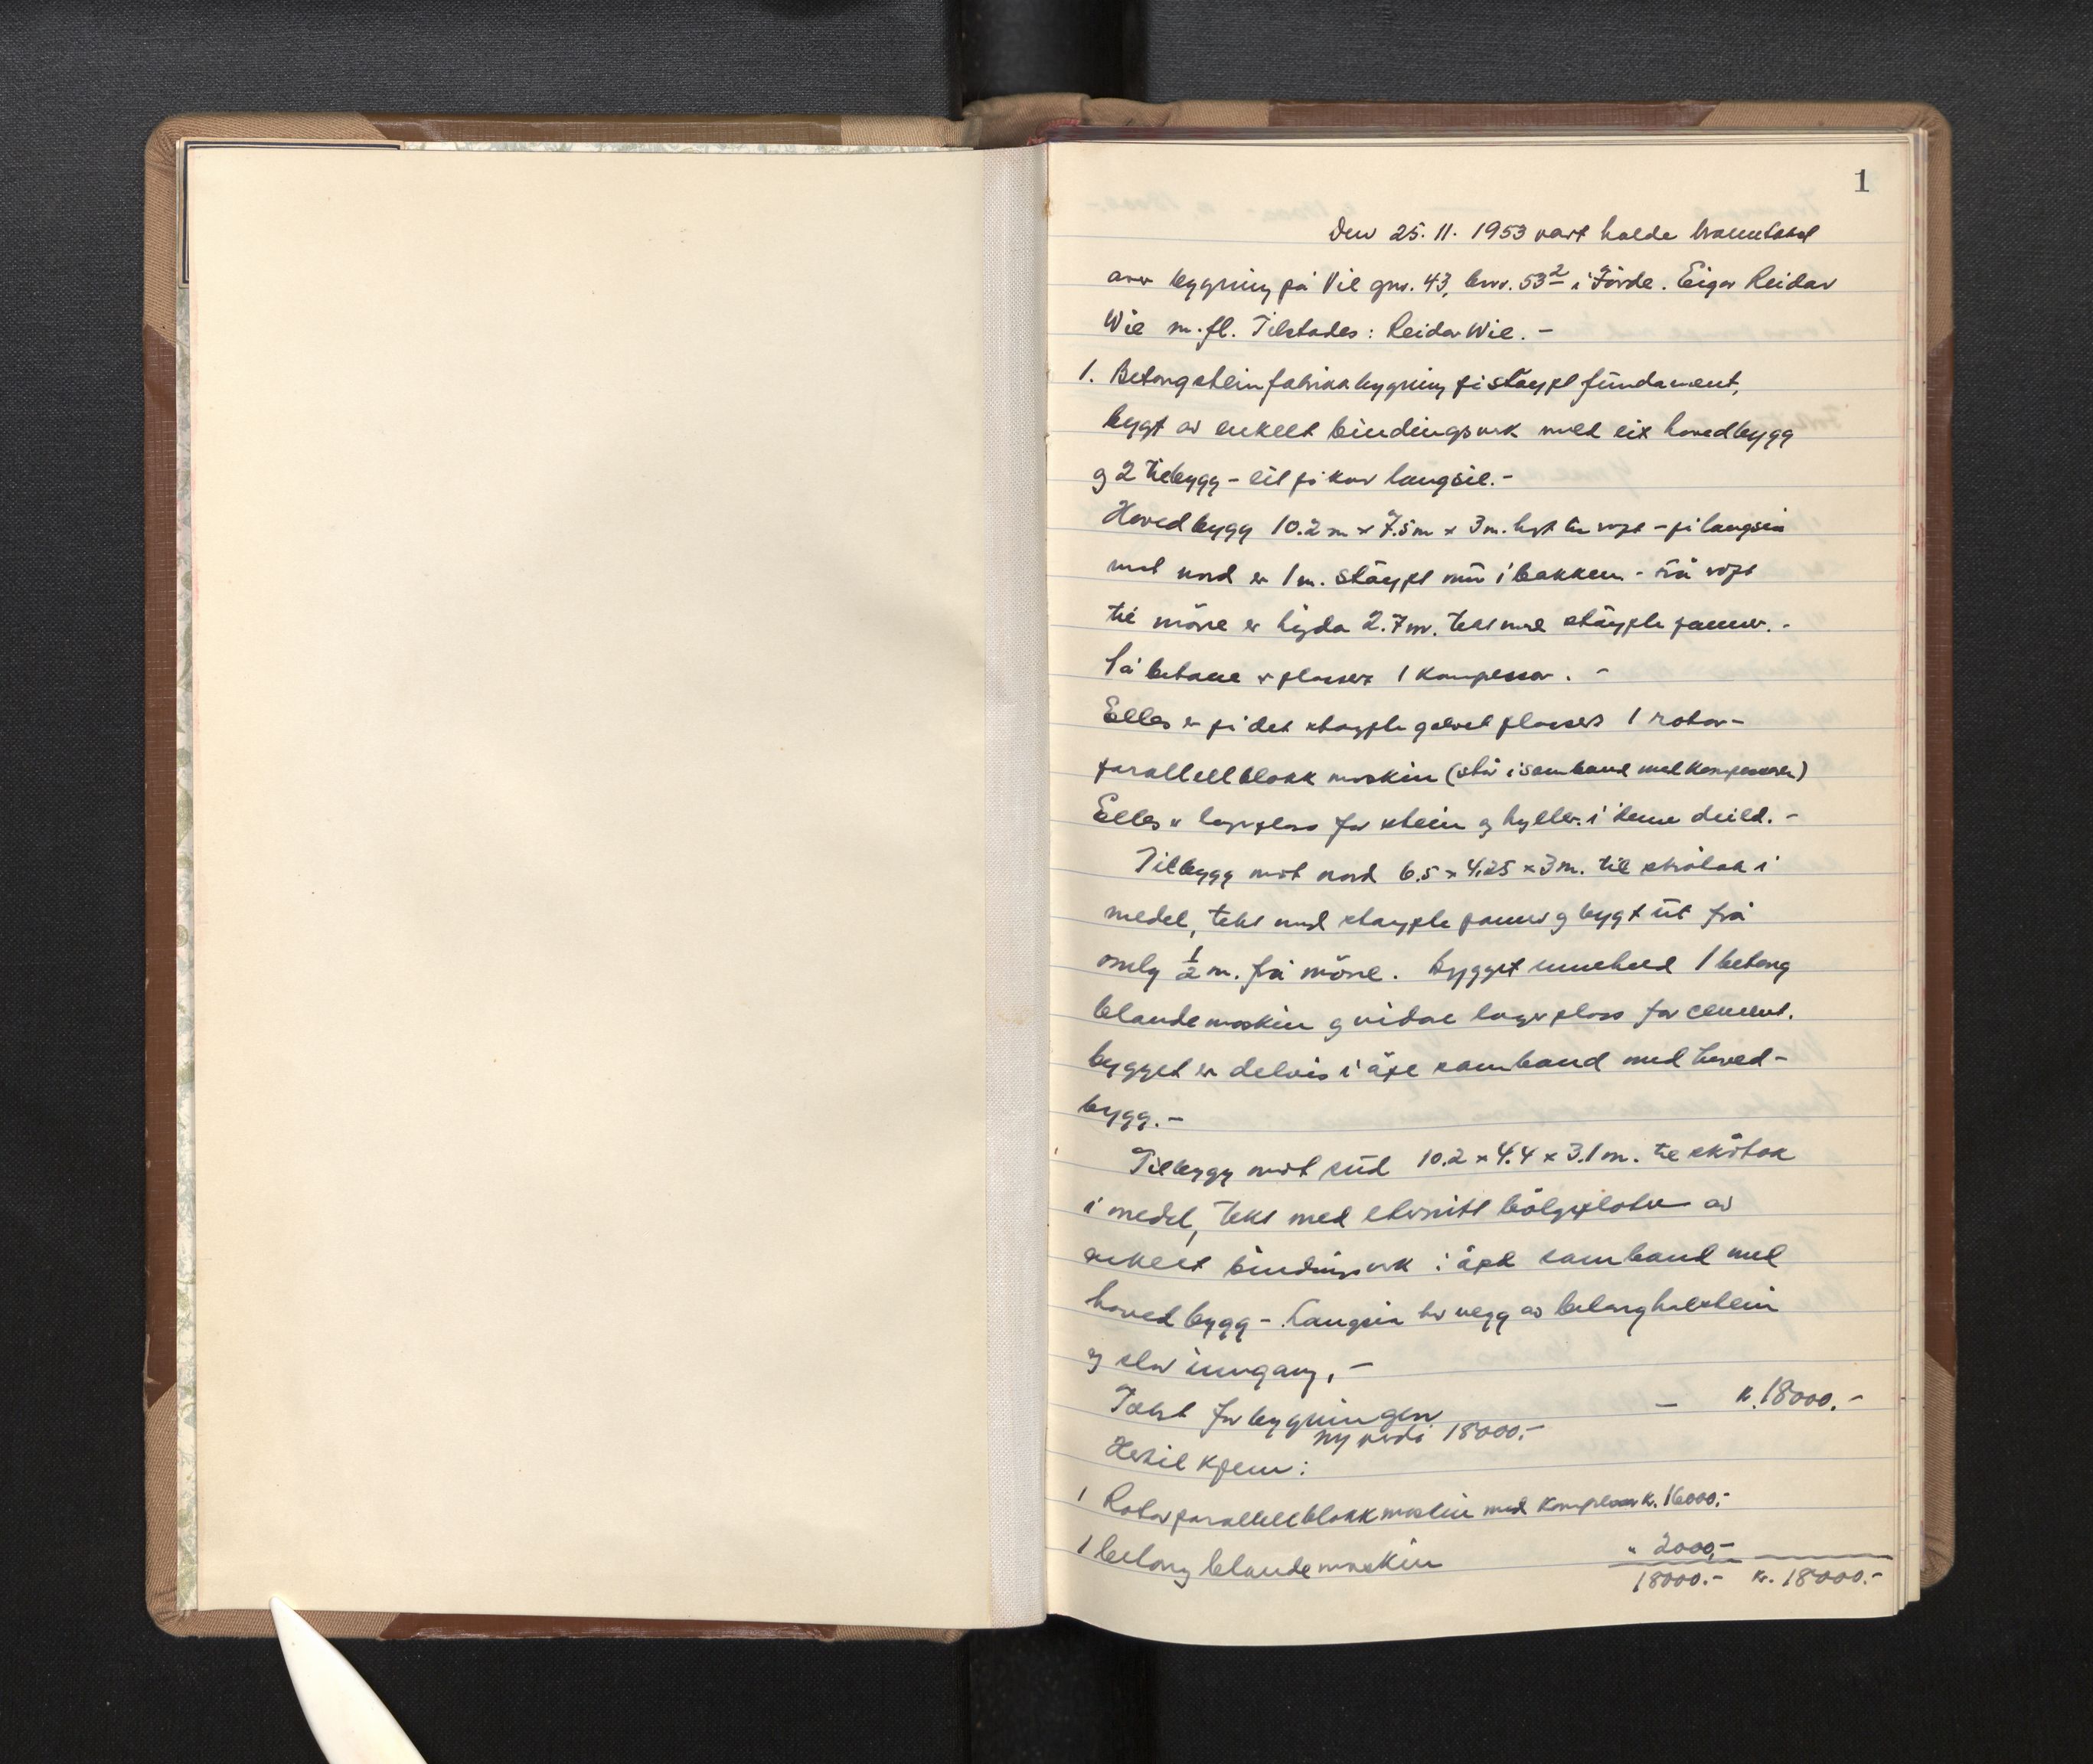 1
Den 25. 11. 1953 vart halde branntakst
over bygning på Vie gnr. 43, bnr. 53² i Förde. Eigar Reidar
Wie m. fl. Tilstades: Reidar Wie. -
1. Betongsteinfabrikkbygning på stöypt fundament,
bygt av enkelt bindingsverk med eit hovedbygg
og 2 tilbygg - eit på kvar langsie. -
Hovedbygg 10.2 m x 7.5 m x 3 m. högt til röst - på langsia
mot nord er 1 m. stöypt mur i bakken - frå röst
til möne er högda 2.7 m. Tekt med stöypte panner. -
På betane er plassert 1 kompessor. -
Elles er på det stöypte golvet plassert 1 rotor-
parallellblokk maskin (står i samband med kompessoren)
Elles er lagerplass for stein og hyller i denne deild. -
Tilbygg mot nord 6.5 x 4.25 x 3 m. til skråtak i
medel, tekt med stöypte panner og bygt ut frå
omlag ½ m. frå möne. Bygget inneheld 1 betong
blandemaskin og vidare lagerplass for cement.
bygget er delvis i åpe samband med hoved-
bygg. -
Tilbygg mot süd 10.2 x 4.4 x 3.1 m. til skråtak
i medel, tekt med eternitt bölgeplater av
enkelt bindingsverk i åpe samband med
hovedbygg - Langsia har vegg av betongholstein
og stor inngang, -
Takst for bygningen - kr. 18000.-
ny verdi 18000.-
Hertil kjem:
1 Rotorparallellblokkmaskin med kompessor kr. 16000.-
1 betong blandemaskin " 2000,-
18000.- kr. 18000.-